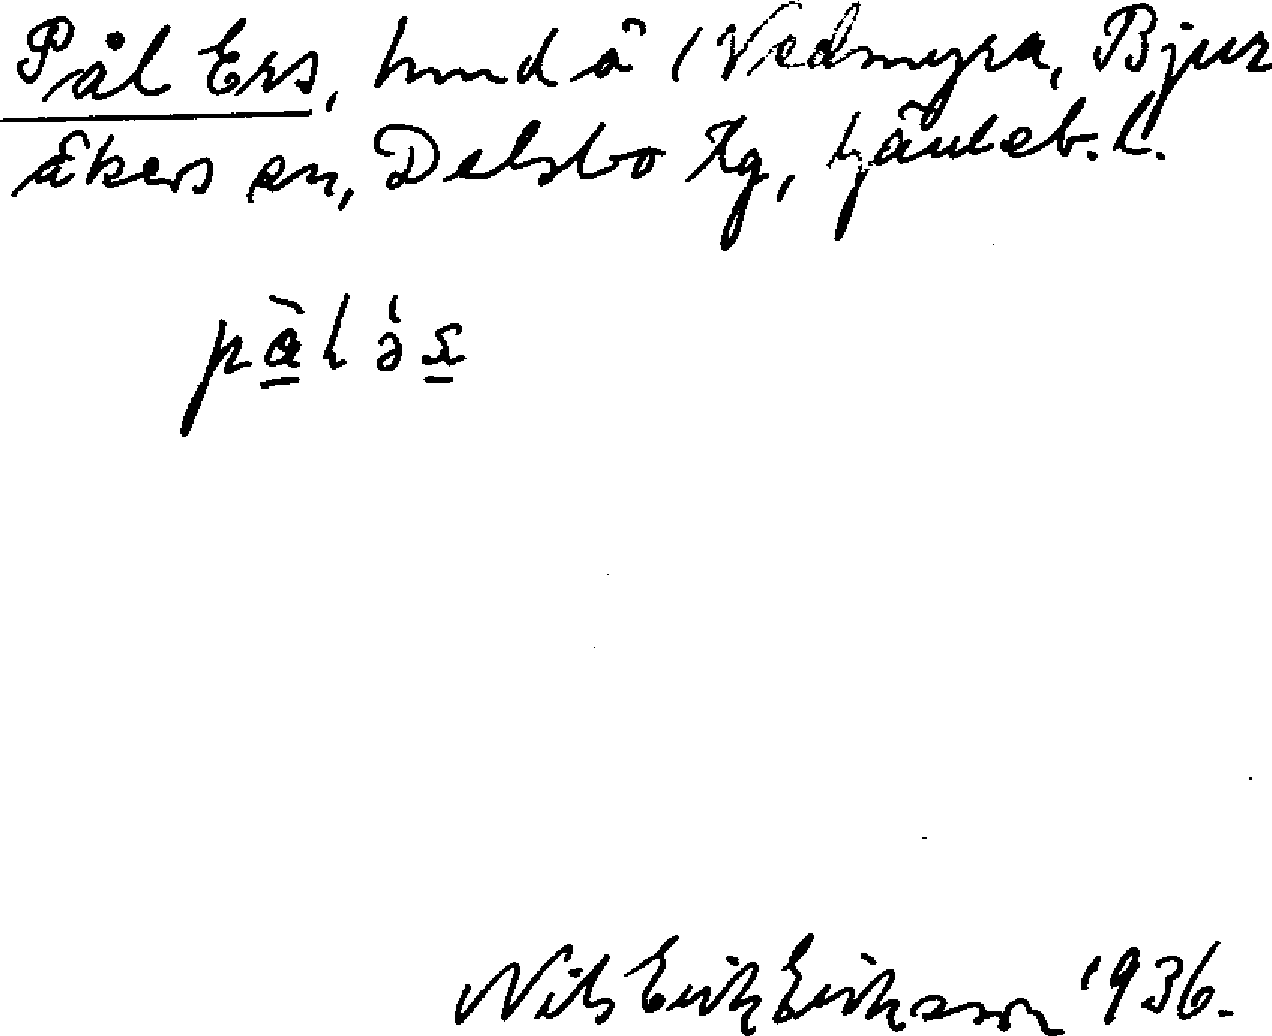 Pål Ers, hmd å i Vedmyra, Bjur
åkers sn, Delsbo tg, Gävleb. l.
pàlə̀s
Nils Erik Eriksson 1936.